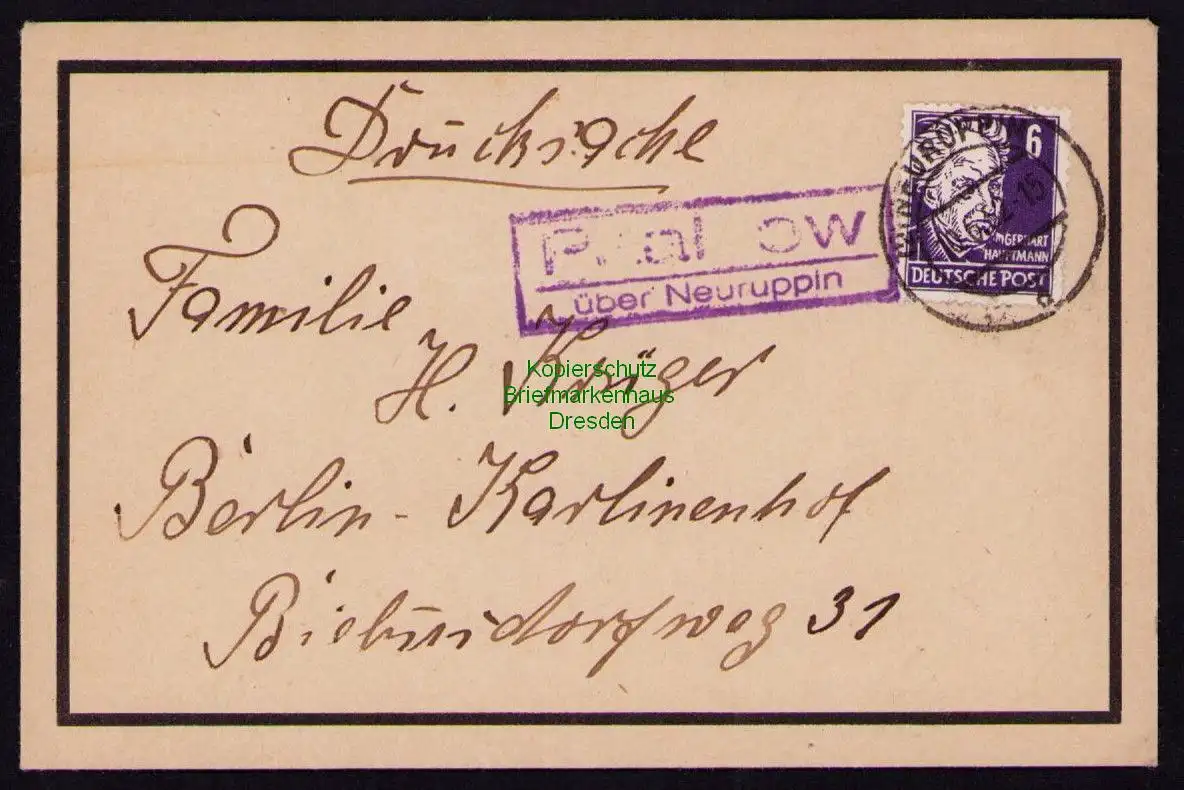 Drucksache
6
GERHART
HAUPTMANN
DEUTSCHE POST
NEURUPPIN
über Neuruppin
Familie
H. Krüger
Kopierschutz
Briefmarkenhaus
Dresden
Berlin - Karlinenhof
31